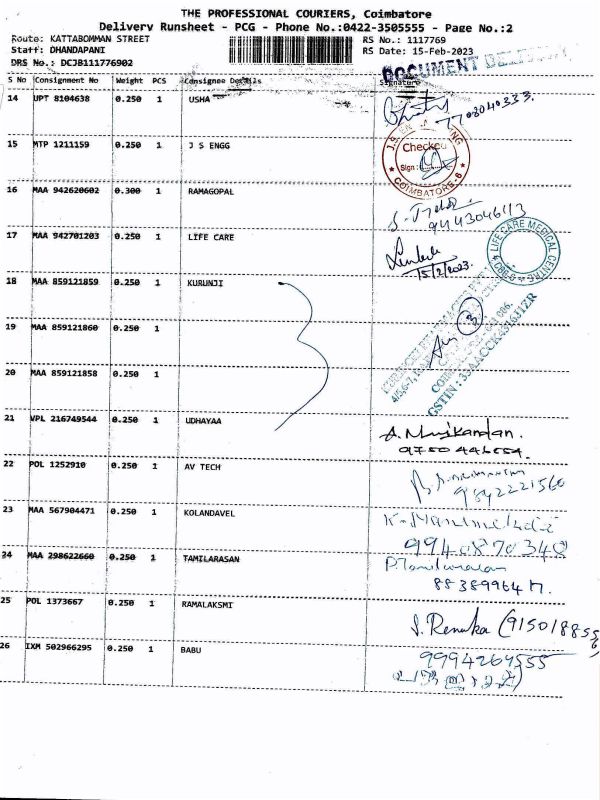 THE PROFESSIONAL COURIERS, Coimbatore
Delivery Runsheet - PCG - Phone No.:0422-3505555 - Page No.:2
Route: KATTABOMMAN STREET
RS No.: 1117769
Staff: DHANDAPANI
RS Date: 15-Feb-2023
DRS No.: DCJB111776902
DOCUMENT DELIVERY
S No Consignment No Weight PCS Consignee Details Signature
14 UPT 8104638 0.250 1 USHA
7708040333.
15 MTP 1211159 0.250 1 J S ENGG
Checked
Sign:
COIMBATORE-6
16 MAA 942620602 0.300 1 RAMAGOPAL
9443046113
17 MAA 942701203 0.250 1 LIFE CARE
15/2/2023.
LIFE CARE MEDICAL CENTRE
CBE-6
18 MAA 859121859 0.250 1 KURUNJI
3
19 MAA 859121860 0.250 1
GSTIN : 33AACCK4316J1ZR
20 MAA 859121858 0.250 1
21 VPL 216749544 0.250 1 UDHAYAA
A. Murikandan.
22 POL 1252910 0.250 1 AV TECH
9842221560
23 MAA 567904471 0.250 1 KOLANDAVEL
9940870348
24 MAA 298622660 0.250 1 TAMILARASAN
P. Tamilarasan
25 POL 1373667 0.250 1 RAMALAKSMI
S. Renuka (9150188556)
26 IXM 502966295 0.250 1 BABU
9994264555